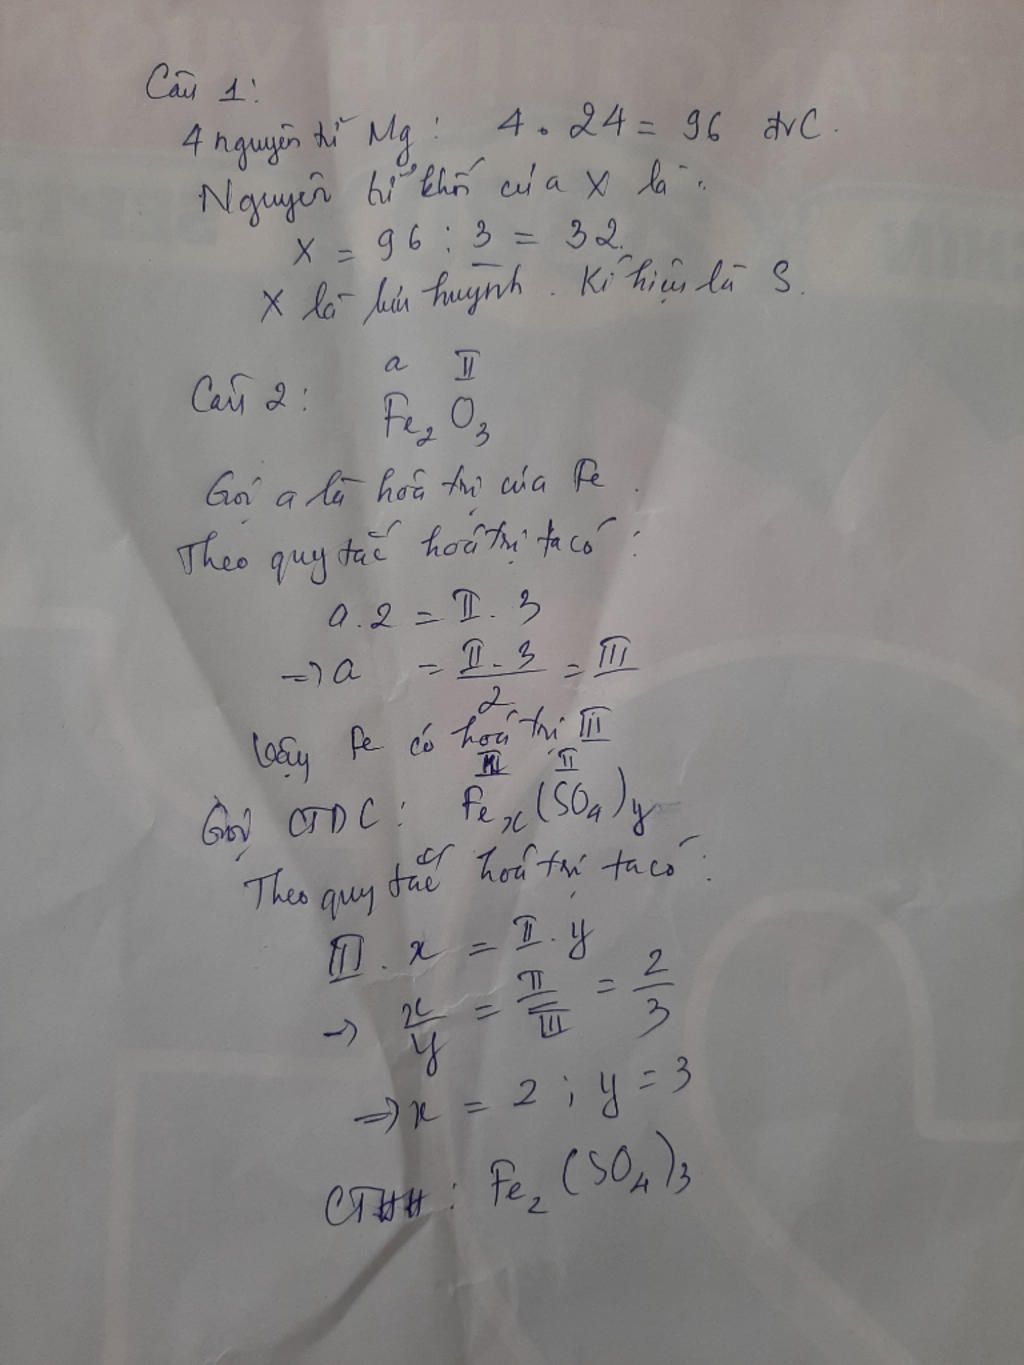 Câu 1:
4 nguyên tử Mg: 4 . 24 = 96 đvC.
Nguyên tử khối của X là:
X = 96 : 3 = 32.
X là lưu huỳnh. Kí hiệu là S.
a II
Câu 2: Fe2 O3
Gọi a là hoá trị của Fe.
Theo quy tắc hoá trị ta có:
a . 2 = II . 3
=> a = II . 3 / 2 = III
Vậy Fe có hoá trị III
III II
Gọi CTDC: Fex (SO4)y
Theo quy tắc hoá trị ta có:
III . x = II . y
-> x/y = II/III = 2/3
=> x = 2 ; y = 3
CTHH: Fe2 (SO4)3